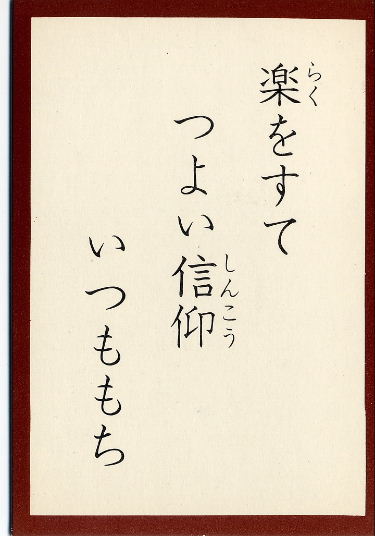 楽をすて
つよい信仰
いつももち
らく
しんこう